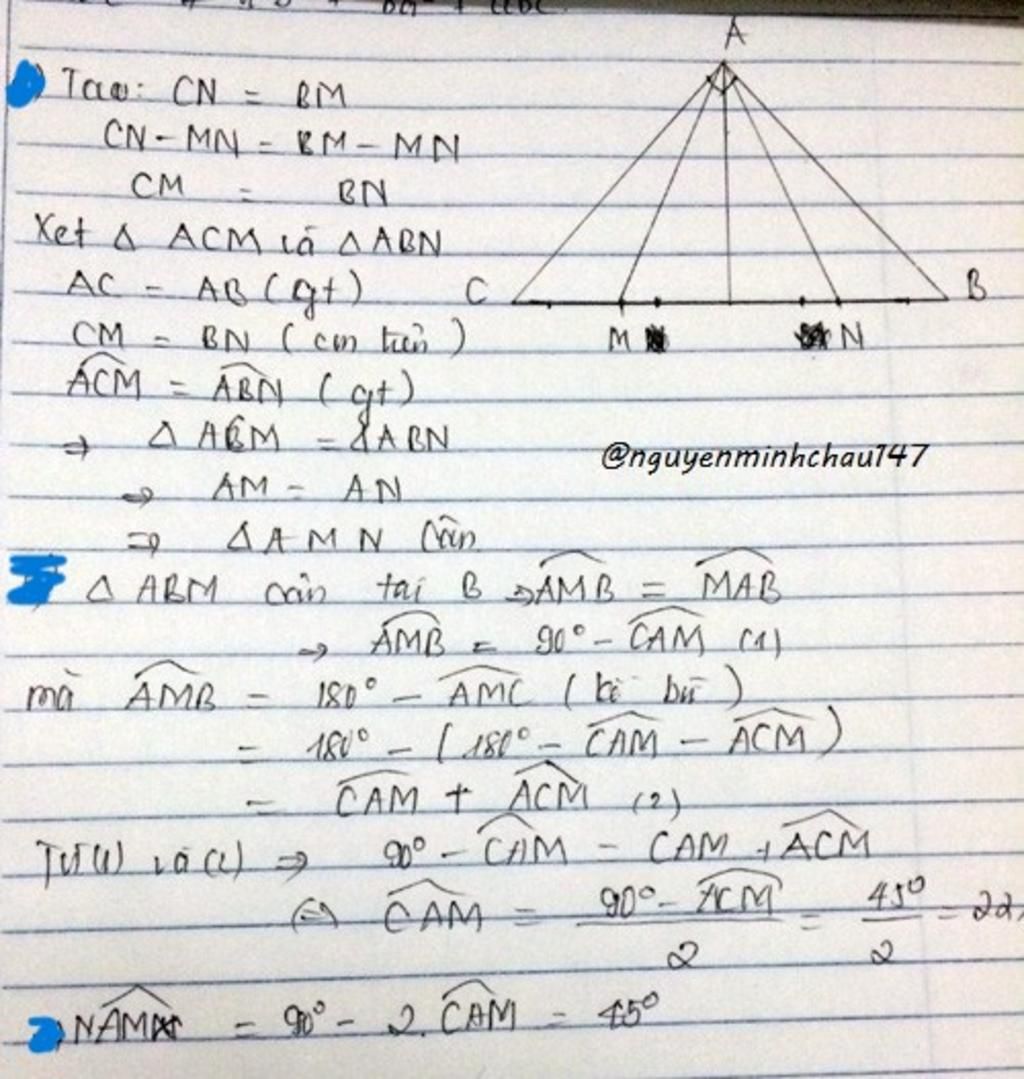 A
) Ta có: CN = BM
CN - MN = BM - MN
CM = BN
Xet Δ ACM và Δ ABN
AC = AB (gt)
C B
CM = BN (cm trên)
M N
ACM = ABN (gt)
⇒ Δ ACM = Δ ABN
@nguyenminhchau147
⇒ AM = AN
⇒ Δ AMN cân
Δ ABM cân tai B ⇒ AMB = MAB
⇒ AMB = 90° - CAM (1)
mà AMB = 180° - AMC (kề bù)
= 180° - (180° - CAM - ACM)
= CAM + ACM (2)
Từ (1) và (2) ⇒ 90° - CAM = CAM + ACM
(=) CAM = 90° - ACM / 2 = 45° / 2 = 22,
NAM = 90° - 2. CAM = 45°